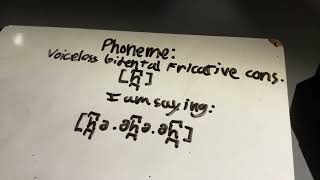 Phoneme:
Voiceless bidental Fricative cons.
[h̪͆]
I am saying:
[h̪͆ə.əh̪͆ə.əh̪͆]